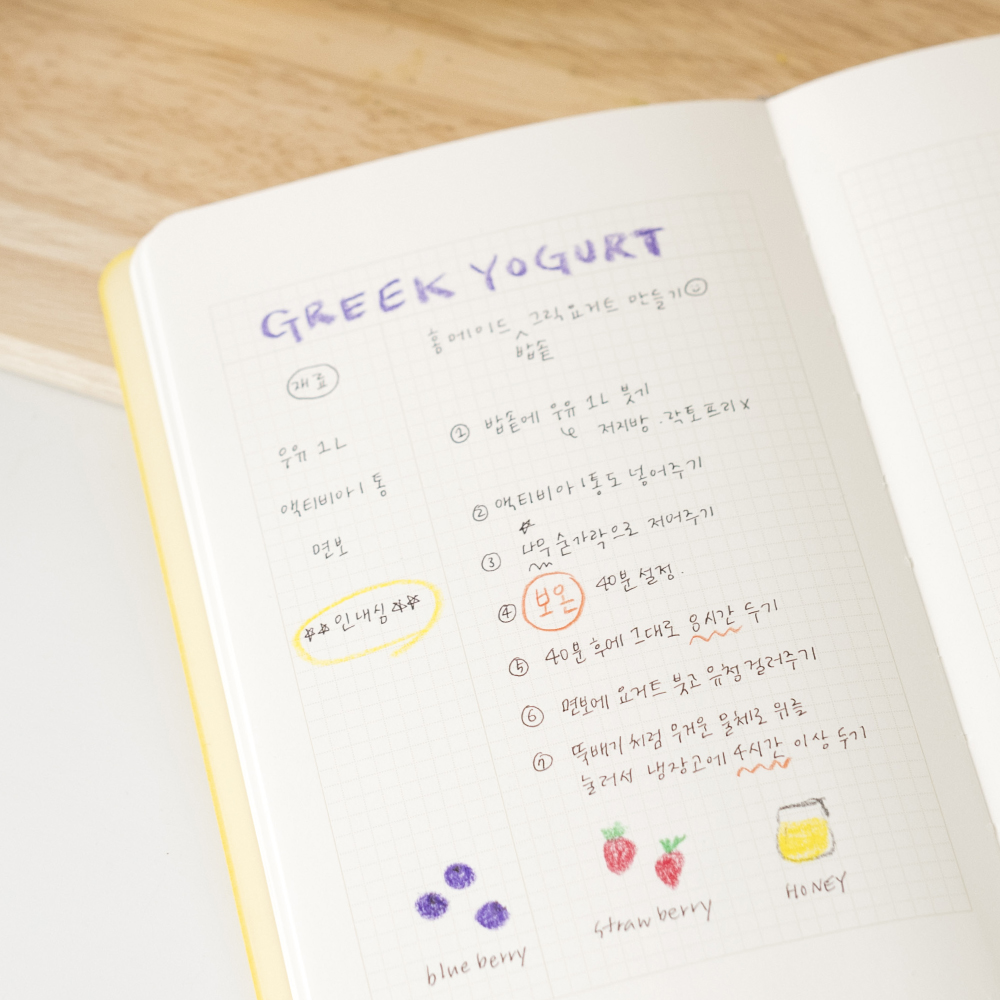 GREEK YOGURT
홈메이드 그릭요거트 만들기
밥솥
재료
우유 1L
액티비아 1통
면보
인내심
① 밥솥에 우유 1L 붓기
저지방·락토프리 x
② 액티비아 1통도 넣어주기
③ 나무숟가락으로 저어주기
④ 보온 40분 설정.
⑤ 40분 후에 그대로 8시간 두기
⑥ 면보에 요거트 붓고 유청 걸러주기
⑦ 뚝배기처럼 무거운 물체로 위를
눌러서 냉장고에 4시간 이상 두기
blue berry
strawberry
HONEY